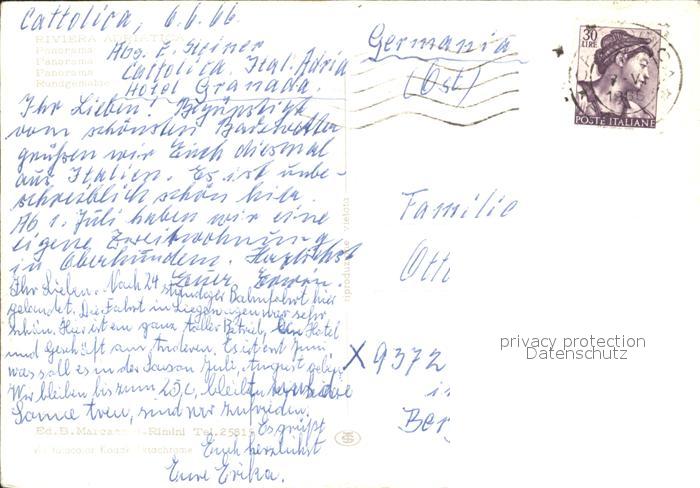 Cattolica, 6.6.66
RIVIERA ADRIATICA
Panorama
Panorama
Panorama
Rundgemälde
Abs. E. Steiner
Cattolica. Ital. Adria
Hotel Granada.
Ihr Lieben! Begünstigt
vom schönsten Badewetter
grüßen wir Euch diesmal
aus Italien. Es ist unbe-
schreiblich schön hier.
Ab 1. Juli haben wir eine
eigene Zweitwohnung
in Oberhundem. Herzlichst
Euer Erwin.
Ihr Lieben. Nach 24 stündiger Bahnfahrt hier
gelandet. Die Fahrt im Liegewagen war sehr
schön. Hier ist ein ganz toller Betrieb, Hotel
und Geschäft am Anderen. Es ist erst Juni
was soll es in der Saison Juli, August geben.
Wir bleiben bis zum bleibt uns die
Sonne treu, sind wir zufrieden.
Es grüßt
Euch herzlichst
Eure Erika.
Ed. B. Rimini Tel. 25815
Kodak Ektachrome
riproduzione vietata
Germania
(Ost)
30
LIRE
POSTE ITALIANE
Familie
Otto
X 9372
in
Ber
privacy protection
Datenschutz